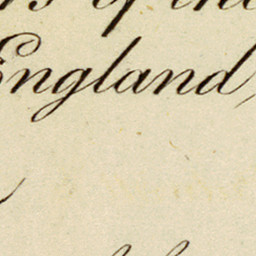 of the
England,